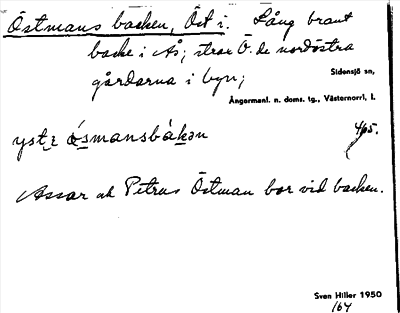 Östmans backen, Öst i. Lång brant
backe i Ås; strax Ö. de nordöstra
gårdarna i byn;
Sidensjö sn,
Ångermanl. n. doms. tg., Västernorrl. l.
yste ósmansbàkən
4/65.
Assar och Petrus Östman bor vid backen.
Sven Hiller 1950
164